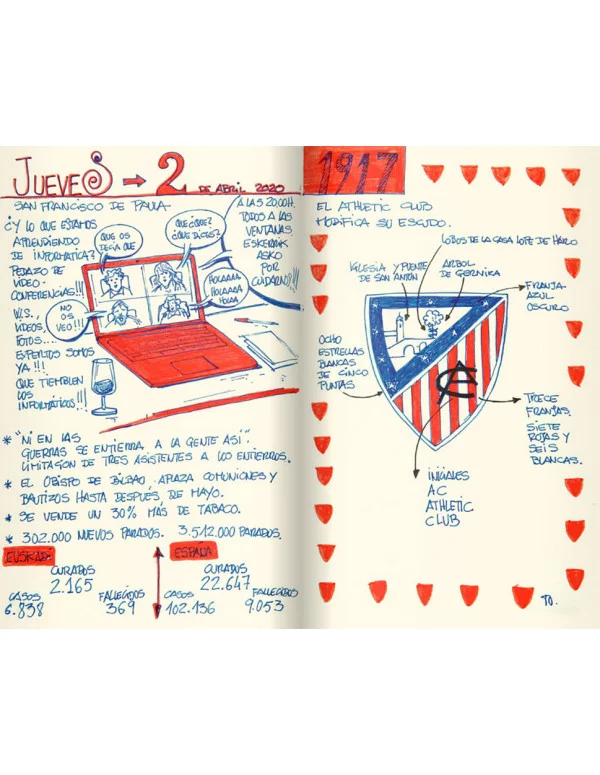 JUEVES → 2 DE ABRIL 2020
SAN FRANCISCO DE PAULA
¿Y LO QUE ESTAMOS
APRENDIENDO
DE INFORMATICA?
PEDAZO DE
VIDEO-
CONFERENCIAS!!!
W.S.,
VIDEOS,
FOTOS....
EXPERTITOS SOMOS
YA!!!
QUE TIEMBLEN
LOS
INFORMÁTICOS!!!
QUE OS
DECÍA QUE
¿QUE,QUE?
¿QUE DICES?
NO
OS
VEO!!!
HOLAAAA
HOLAAAAA
HOLAA
A LAS 20,00H.
TODOS A LAS
VENTANAS
ESKERRIK
ASKO
POR
CUIDARNOS!!!
* "NI EN LAS
GUERRAS SE ENTIERRA A LA GENTE ASÍ".
LIMITACIÓN DE TRES ASISTENTES A LOS ENTIERROS.
* EL OBISPO DE BILBAO, APLAZA COMUNIONES Y
BAUTIZOS HASTA DESPUES, DE MAYO.
* SE VENDE UN 30% MÁS DE TABACO.
* 302.000 NUEVOS PARADOS. 3.512.000 PARADOS.
EUSKADI
CURADOS
2.165
CASOS
6.838
FALLECIDOS
369
ESPAÑA
CURADOS
22.647
CASOS
102.136
FALLECIDOS
9.053
1917
EL ATHLETIC CLUB
MODIFICA SU ESCUDO.
LOBOS DE LA CASA LOPE DE HARO
IGLESIA Y PUENTE
DE SAN ANTÓN
ARBOL
DE GERNIKA
FRANJA
AZUL
OSCURO
OCHO
ESTRELLAS
BLANCAS
DE CINCO
PUNTAS
AC
TRECE
FRANJAS.
SIETE
ROJAS Y
SEIS
BLANCAS.
INICIALES
AC
ATHLETIC
CLUB